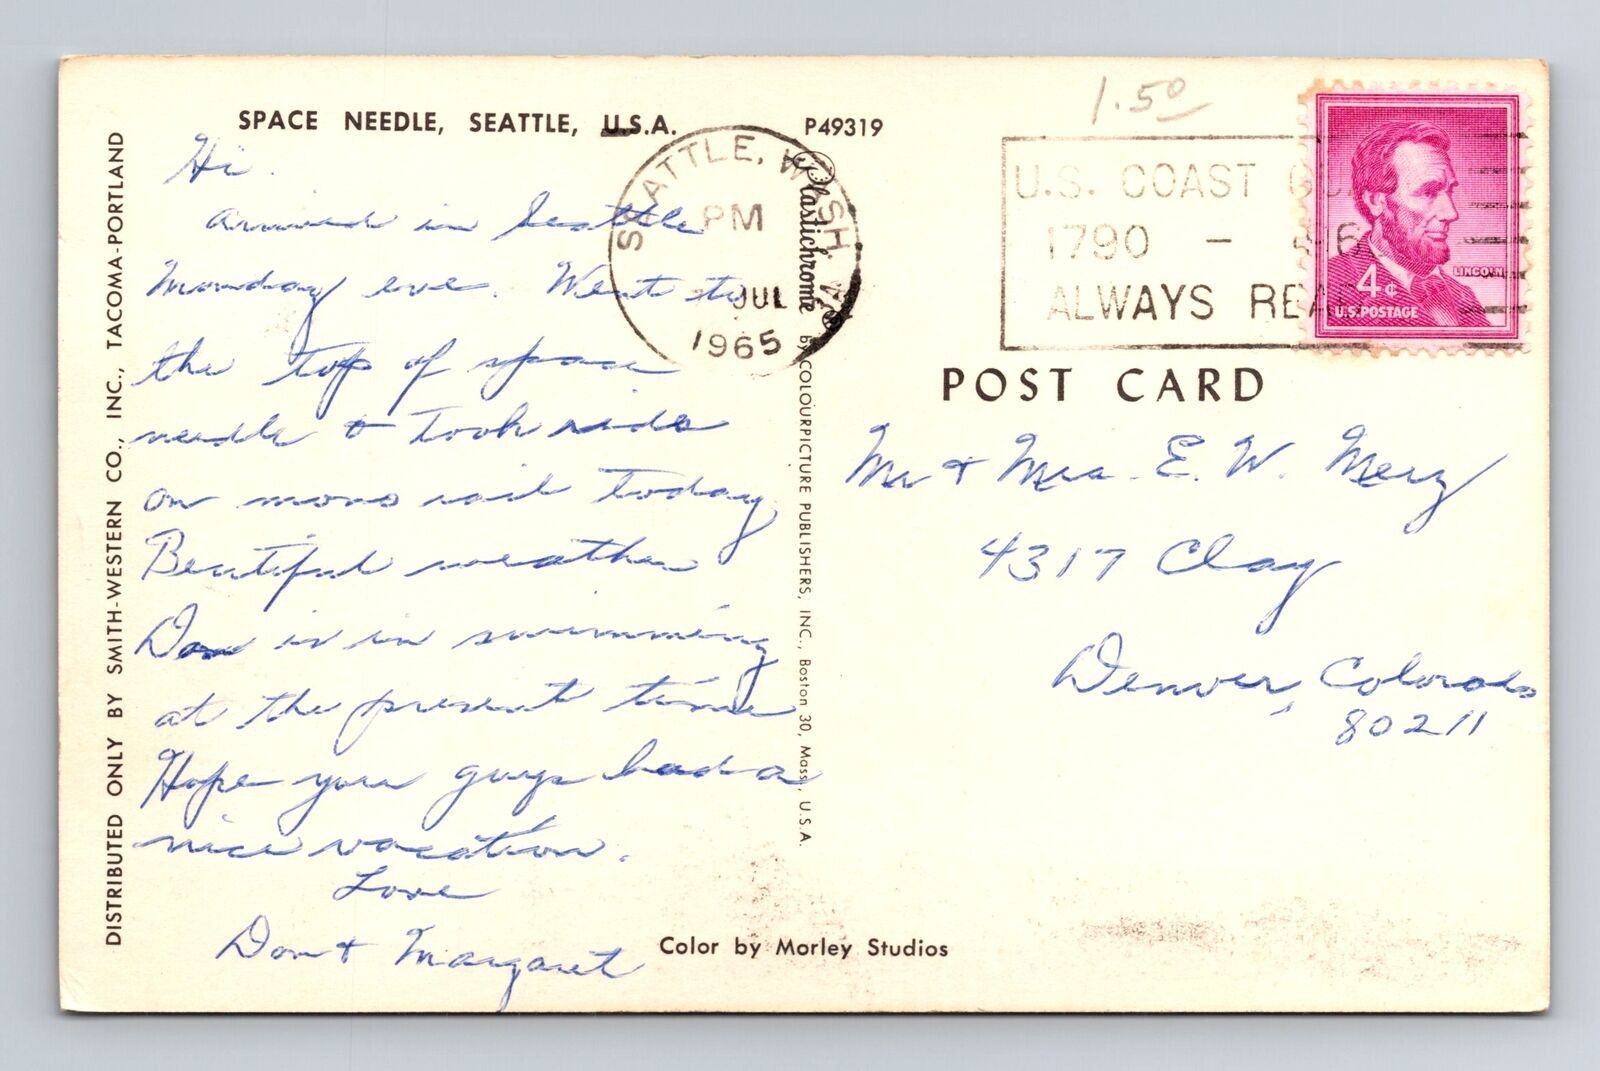 SPACE NEEDLE, SEATTLE, U.S.A.
P49319
Hi.
arrived in Seattle
Monday eve. Went to
the top of space
needle & took ride
on mono rail today.
Beatiful weather
Don is in swimming
at the present time
Hope you guys had a
nice vacation.
Love
Don & Margaret
DISTRIBUTED ONLY BY SMITH-WESTERN CO., INC., TACOMA-PORTLAND
Plastichrome ® by COLOURPICTURE PUBLISHERS, INC., Boston 30, Mass., U.S.A.
Color by Morley Studios
SEATTLE, WASH.
PM
JUL
1965
1.50
U.S. COAST
1790 -
ALWAYS
LINCOLN
4¢
U.S. POSTAGE
POST CARD
Mr & Mrs. E. W. Merz
4317 Clay
Denver, Colorado
80211